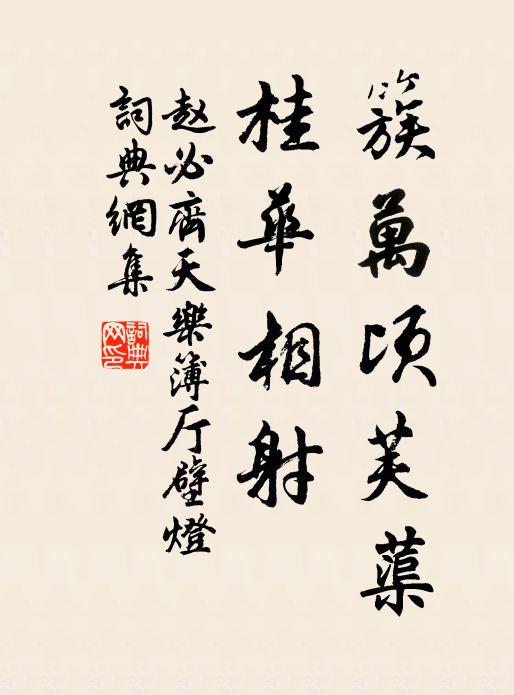 簇萬頃芙蕖
桂華相射
赵必齊天樂簿厅壁燈
詞典網集
詞典网印